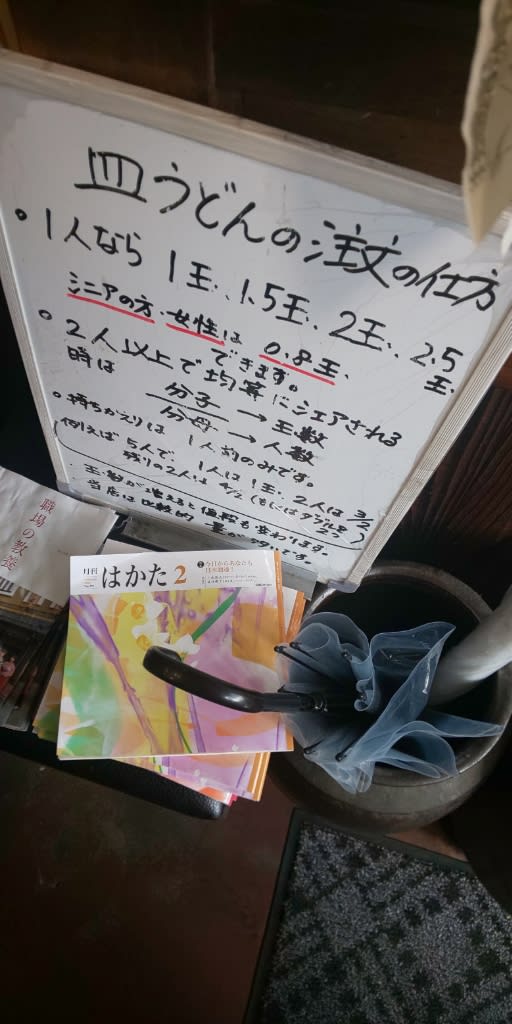 皿うどんの注文の仕方
・1人なら 1玉、1.5玉、2玉、2.5玉、
シニアの方・女性は 0.8玉、
できます。
・2人以上で均等にシェアされる
時は 分子 → 玉数
分母 → 人数
・持ちかえりは 1人前のみです。
例えば 5人で、1人は1玉、2人は 3/2
残りの2人は
・玉数が増えると値段も変わります。
当店は比較的 量が です。
職場の教養
月刊
はかた 2
今日からあなたも